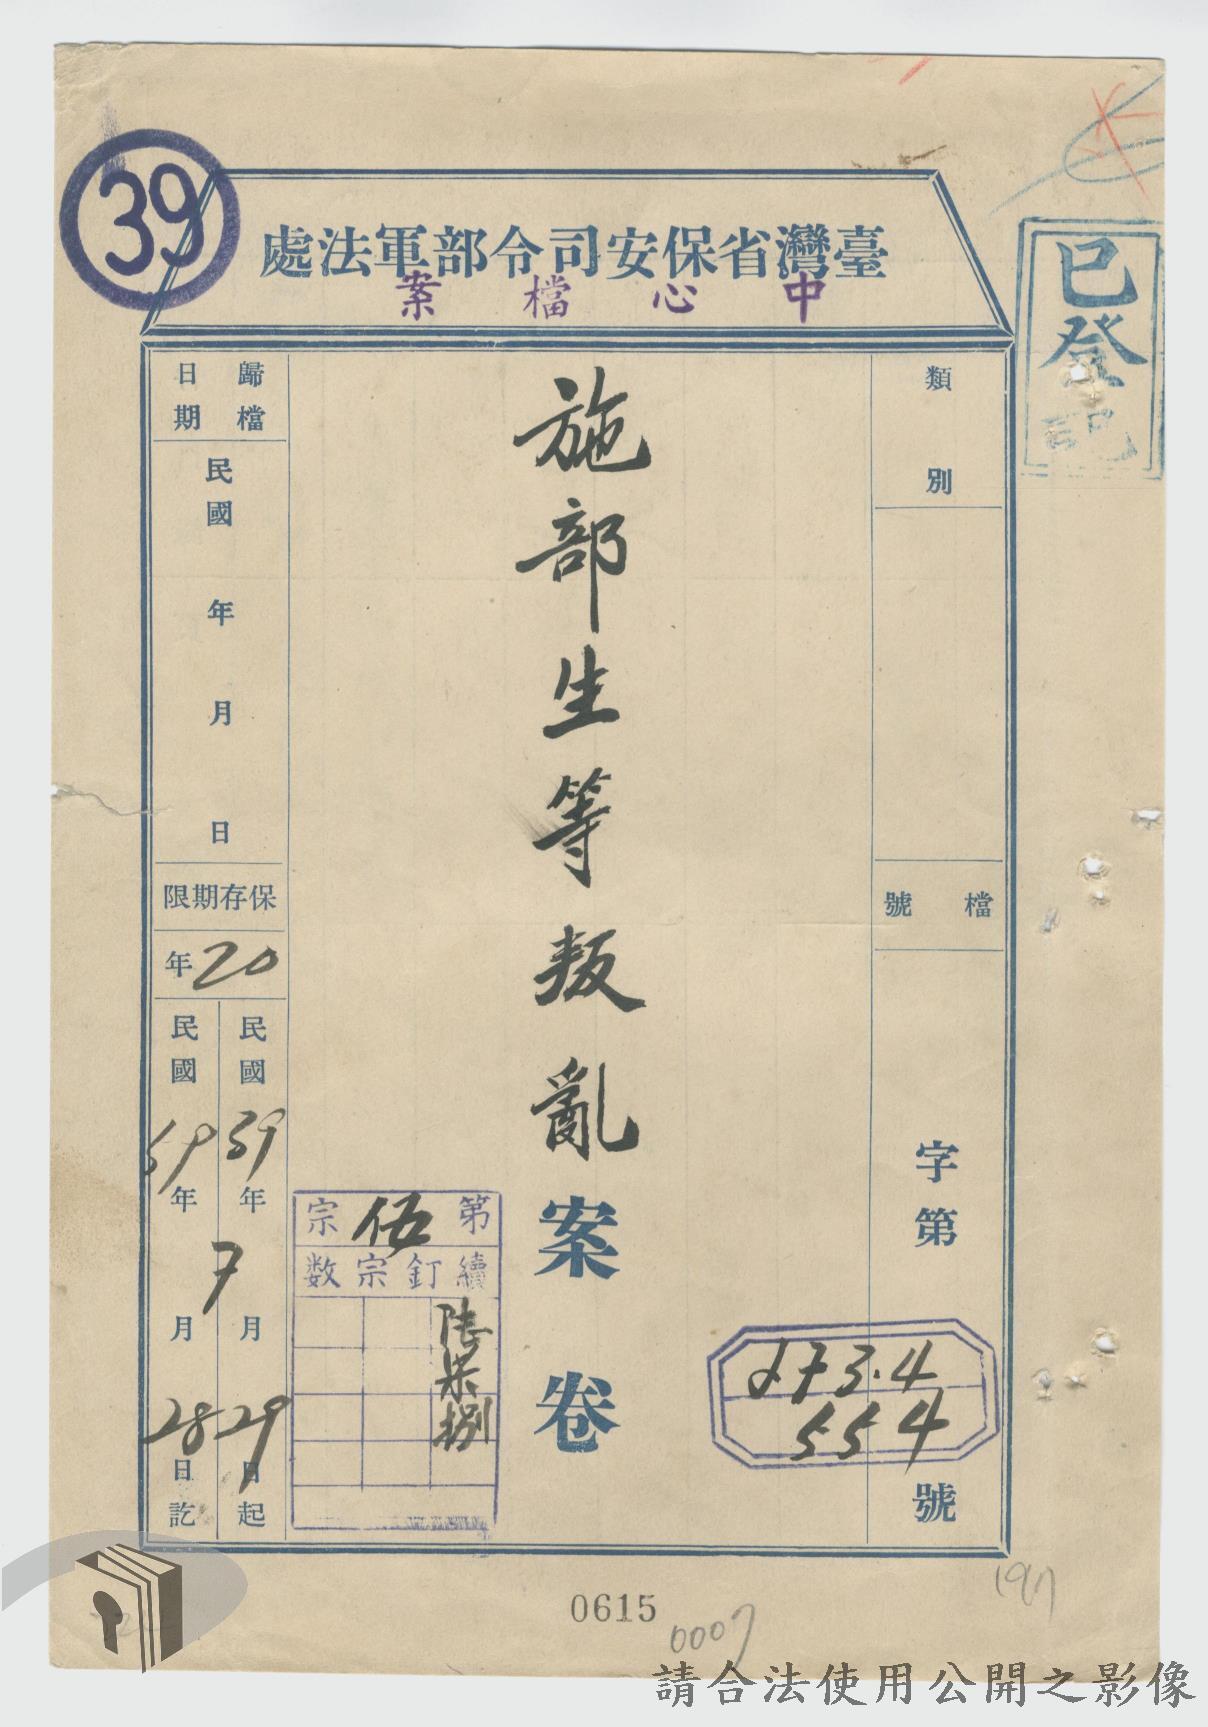 39
臺灣省保安司令部軍法處
中心檔案
已登記
類別
檔號
字第
273.4
554
號
施部生等叛亂案卷
第伍宗
續釘宗数
陸
柒
捌
歸檔日期
民國 年 月 日
保存期限
20年
民國39年7月29日起
民國59年7月28日訖
0615
0007
197
請合法使用公開之影像